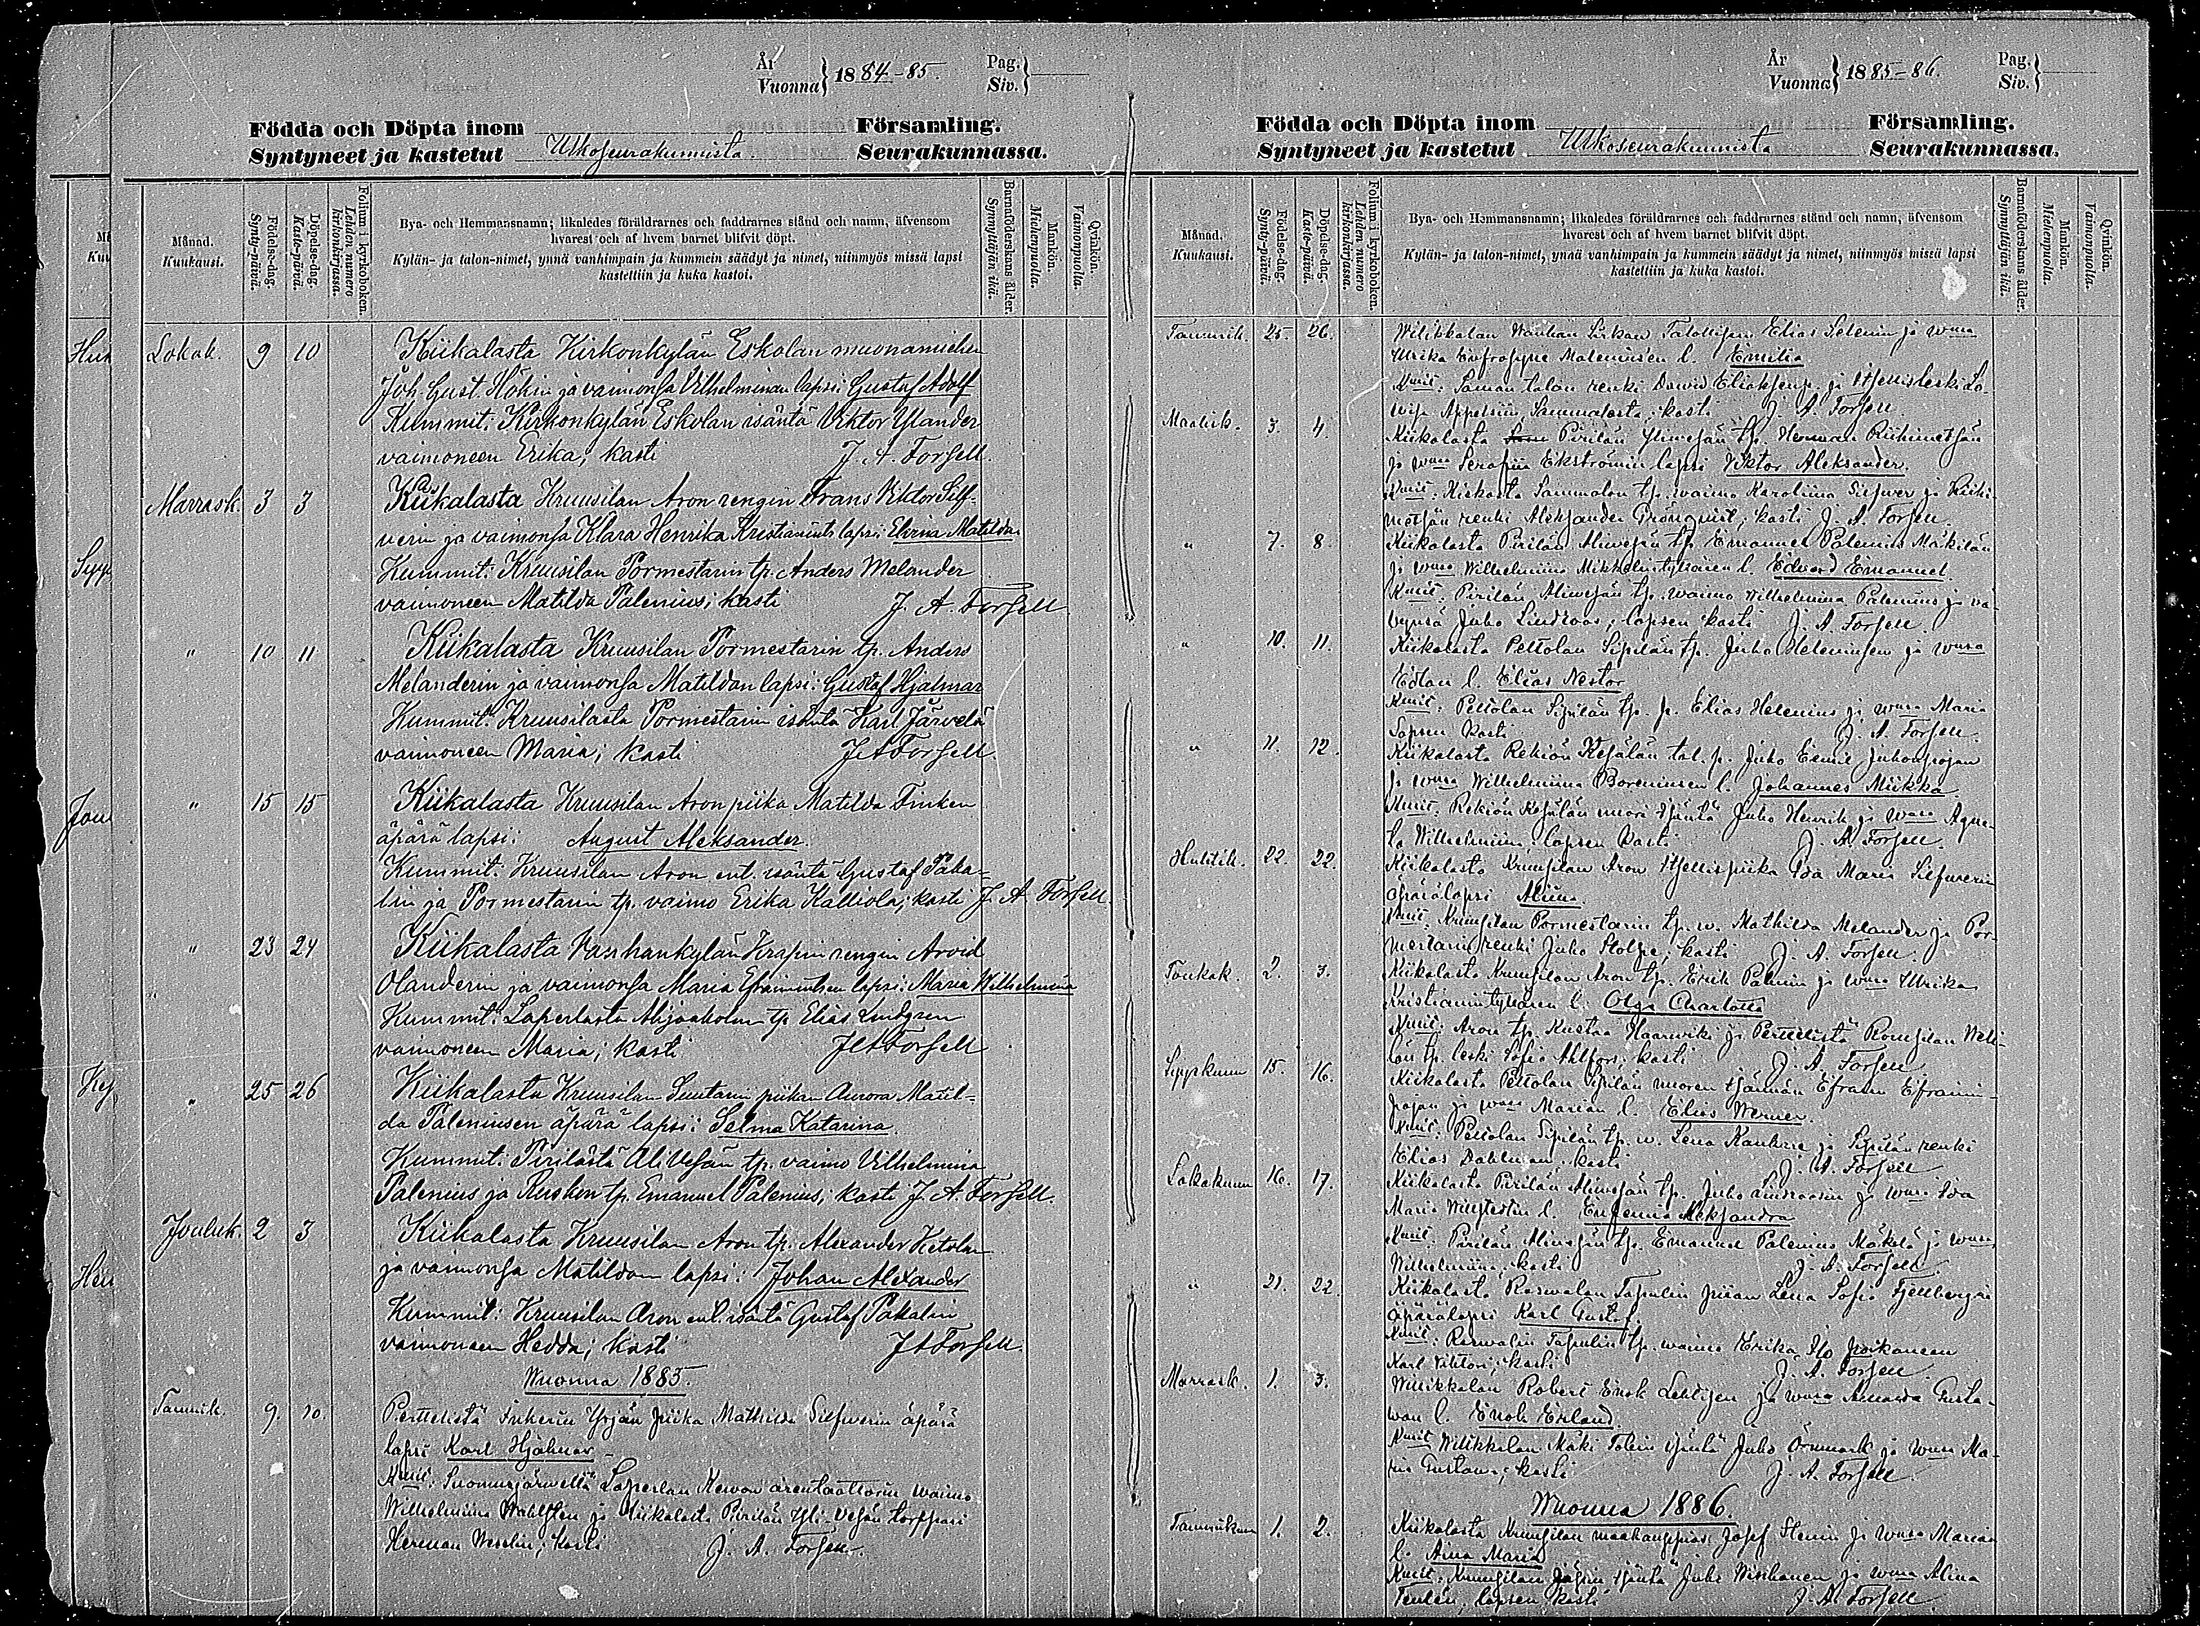 År
Vuonna } 1884-85.
Pag.
Siv. }
Födda och Döpta inom Församling.
Syntyneet ja kastetut Ulkoseurakunnista Seurakunnassa.
Månad.
Kuukausi.
Födelse-dag.
Synty-päivä.
Döpelse-dag.
Kaste-päivä.
Folium i kyrkoboken.
Lehden numero kirkonkirjassa.
Bya- och Hemmansnamn; likaledes föräldrarnes och faddrarnes stånd och namn, äfvensom
hvarest och af hvem barnet blifvit döpt.
Kylän- ja talon-nimet, ynnä vanhimpain ja kummein säädyt ja nimet, niinmyös missä lapsi
kastettiin ja kuka kastoi.
Barnaföderskans ålder.
Synnyttäjän ikä.
Mankön.
Miehenpuolia.
Qvinkön.
Vaimonpuolia.
Lokak. 9 10 Kiikalasta Kirkonkylän Eskolan muonamiehen
Joh. Gust. Höhin ja vaimonsa Vilhelminan lapsi: Gustaf Adolf
Kummit: Kirkonkylän Eskolan isäntä Viktor Ylander
vaimoneen Erika; kasti J. A. Forsell.
Marrask. 3 3 Kiikalasta Kruusilan Aron rengin Frans Viktor Silf-
verin ja vaimonsa Klara Henrika Kristianint. lapsi: Elvina Matilda.
Kummit: Kruusilan Pormestarin tp. Anders Melander
vaimoneen Matilda Palenius; kasti J. A. Forsell
" 10 11 Kiikalasta Kruusilan Pormestarin tp. Anders
Melanderin ja vaimonsa Matildan lapsi: Gustaf Hjalmar
Kummit: Kruusilasta Pormestarin isäntä Karl Järvelä
vaimoneen Maria; kasti J A Forsell.
" 15 15 Kiikalasta Kruusilan Aron piika Matilda Finken
äpärä lapsi: August Aleksander.
Kummit: Kruusilan Aron ent. isäntä Gustaf Paka-
lin ja Pormestarin tp. vaimo Erika Kalliola; kasti J. A. Forsell.
" 23 24 Kiikalasta Vanhankylän Krapin rengin Arvid
Olanderin ja vaimonsa Maria Efraimintr. lapsi: Maria Wilhelmina
Kummit: Laperlasta tp. Elias Lindgren
vaimoneen Maria; kasti J A Forsell
" 25 26 Kiikalasta Kruusilan Suutarin piikan Aurora Matil-
da Paleniusen äpärä lapsi: Selma Katarina.
Kummit: Pirilästä Ali Vesan tp. vaimo Vilhelmina
Palenius ja Ruskon tp. Emanuel Palenius; kasti J. A. Forsell.
Jouluk. 2 3 Kiikalasta Kruusilan Aron tp. Alexander Ketolan
ja vaimonsa Matildan lapsi: Johan Alexander
Kummit: Kruusilan Aron ent. isäntä Gustaf Pakalin
vaimoneen Hedda; kasti J A Forsell.
Wuonna 1885.
Tammik. 9. 10. Perttelistä Inkerin Yrjän piika Mathilda Silfwerin äpärä
lapsi Karl Hjalmar.
Kmit: Suomusjärweltä Laperlan arentaattorin waimo
Wilhelmiina Wahlsten ja Kiikalasta Pirilän Yli-Vesan torppari
Herman Weselin; kasti J. A. Forsell.
År
Vuonna } 1885-86.
Pag.
Siv. }
Födda och Döpta inom Församling.
Syntyneet ja kastetut Ulkoseurakunnista Seurakunnassa.
Månad.
Kuukausi.
Födelse-dag.
Synty-päivä.
Döpelse-dag.
Kaste-päivä.
Folium i kyrkoboken.
Lehden numero kirkonkirjassa.
Bya- och Hemmansnamn; likaledes föräldrarnes och faddrarnes stånd och namn, äfvensom
hvarest och af hvem barnet blifvit döpt.
Kylän- ja talon-nimet, ynnä vanhimpain ja kummein säädyt ja nimet, niinmyös missä lapsi
kastettiin ja kuka kastoi.
Barnaföderskans ålder.
Synnyttäjän ikä.
Mankön.
Miehenpuolia.
Qvinkön.
Vaimonpuolia.
Tammik. 25. 26. Wiliskkalan Wanhan Elias Selenin ja wmsa
Ulrika Eufrosyne l. Emilia
Kmit: Saman talon renki Dawid ja Itsellisleski Lo-
wisa Sammalosta; kasti J. A. Forsell.
Maalisk. 3. 4. Kiikalasta Pirilän Yliwesan tp. Herman Riihimetsän
ja wmsa Serafiia Ekströmin lapsi Viktor Aleksander.
Kmit: tp. waimo Karoliina Silfwer ja Riihi-
metsän renki Aleksander Grönqvist; kasti J. A. Forsell.
" 7. 8. Kiikalasta Pirilän Aliwesan tp. Emanuel Palenius Mäkilän
ja wmsa Wilhelmiina l. Edvard Emanuel.
Kmit: Pirilän Aliwesan tp. waimo Wilhelmina Palenius ja wä-
wynsä Juho Lindroos; lapsen kasti J. A. Forsell.
" 10. 11. Kiikalasta Peltolan Sipilän tp. Juho Heleniusen ja wmsa
Edlan l. Elias Nestor
Kmit: Peltolan Sipilän tp. p. Elias Helenius ja wmsa Maria
Lapsen kasti J. A. Forsell.
" 11. 12. Kiikalasta Rekiön Kesälän tal. p. Juho Eemil Juhonpojan
ja wmsa Wilhelmiina Boreniusen l. Johannes Miikka.
Kmit: Rekiön Kesälän nuori isäntä Juho Henrik ja wmsa Agne-
ta Wilhelmiina; lapsen kasti J. A. Forsell.
Huhtik. 22. 22. Kiikalasta Kruusilan Aron Itsellispiika Ida Maria Silfwerin
äpärälapsi Alina.
Kmit: Kruusilan Pormestarin tp. w. Mathilda Melander ja Por-
mestarin renki Juho Stolpe; kasti J. A. Forsell.
Toukok. 2. 3. Kiikalasta Kruusilan Aron tp. Erik Palmin ja wmsa Ulrika
Kristianintyttären l. Olga Charlotta
Kmit: Aron tp. Kustaa Haarwiki ja Perttelistä Romsilan
tp. leski Sofia Ahlfors; kasti J. A. Forsell
Syyskuun 15. 16. Kiikalasta Peltolan Sipilän nuoren isännän Efraim Efraimin-
pojan ja wmsa Marian l. Elias Werner.
Kmit: Peltolan Sipilän tp. w. Lena ja Sipilän renki
Elias Dahlman; kasti J. A. Forsell
Lokakuun 16. 17. Kiikalasta Pirilän Aliwesan tp. Juho Lindroosin ja wmsa Ida
Maria l. Eufemia Aleksandra
Kmit: Pirilän Aliwesan tp. Emanuel Palenius Mäkelä ja wmsa
Wilhelmiina; kasti J. A. Forsell.
" 21. 22. Kiikalasta Raswalan Tapulin piian Lena Sofia Fjellbergin
äpärälapsi Karl Gustaf.
Kmit: Raswalan Tapulin tp. waimo Erika Ilo poikaneen
Karl Viktori; kasti J. A. Forsell.
Marrask. 1. 3. Wiliskkalan Robert Enok Lehtisen ja wmsa Amanda Gusta-
wan l. Enok Erland.
Kmit Wiliskkalan Mäki isäntä Juho Örnmark ja wmsa Ma-
ria Gustawa; kasti J. A. Forsell.
Wuonna 1886.
Tammikuun 1. 2. Kiikalasta Kruusilan maakauppias Josef Stenin ja wmsa Marian
l. Aina Maria
Kmit: Kruusilan isäntä Juho ja wmsa Alina
lapsen kasti J. A. Forsell.